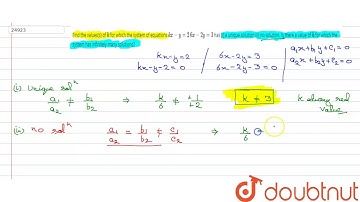 24923
Find the value(s) of k for which the system of equations kx - y = 2 6x - 2y = 3 has (i) a unique solution (ii) no solution. Is there a value of k for which the system has infinitely many solutions?
kx-y=2 / 6x-2y=3 / a₁x+b₁y+c₁=0
kx-y-2=0 / 6x-2y-3=0 / a₂x+b₂y+c₂=0
(i) Unique solⁿ
a₁/a₂ ≠ b₁/b₂ ⇒ k/6 ≠ -1/-2 k ≠ 3 k always real value
(ii) no solⁿ a₁/a₂ = b₁/b₂ ≠ c₁/c₂ ⇒ k/6
doubtnut